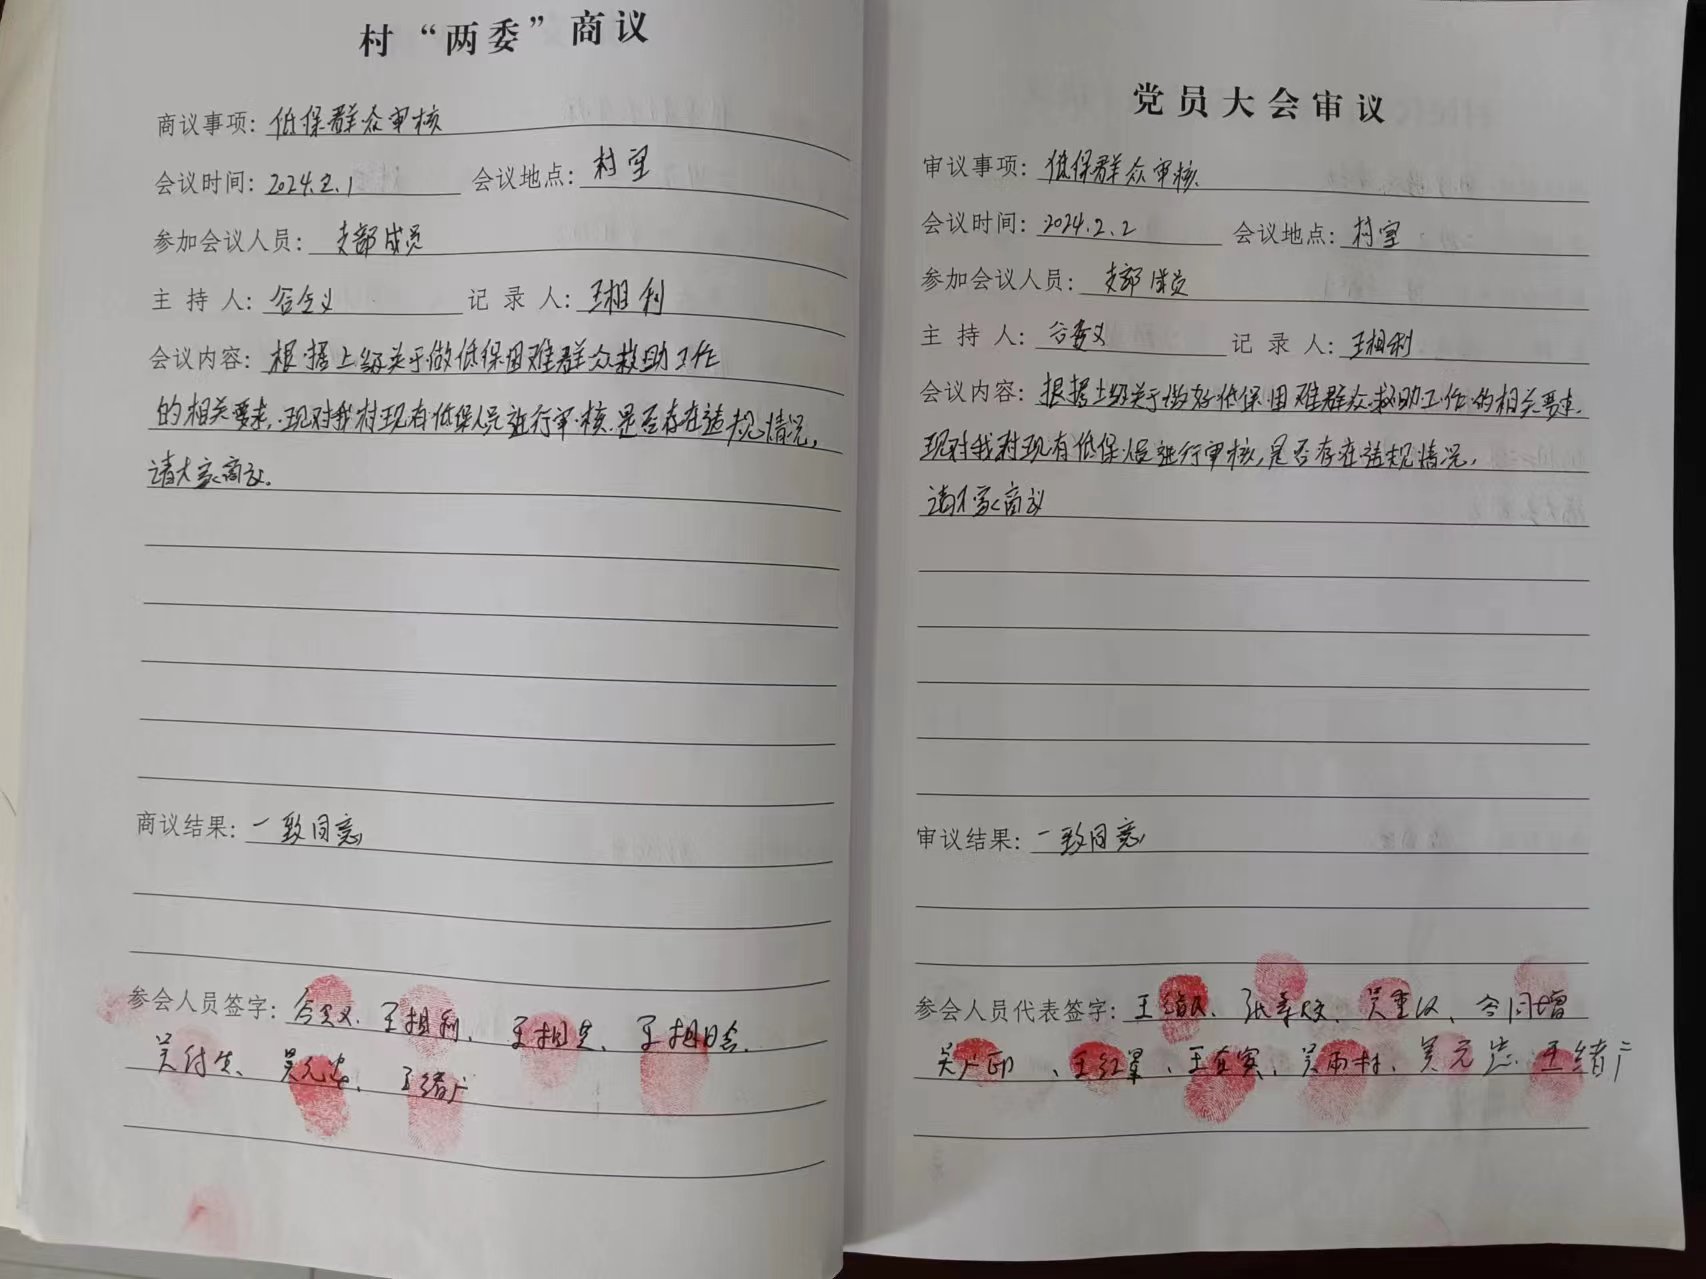 村“两委”商议
商议事项：低保群众审核
会议时间：2024.2.1 会议地点：村室
参加会议人员：支部成员
主持人： 记录人：王相利
会议内容：根据上级关于做低保困难群众救助工作
的相关要求，现对我村现有低保人员进行审核，是否存在违规情况，
请大家商议。
商议结果：一致同意
参会人员签字： 王相利、
吴付生、吴元忠、王绪广
党员大会审议
审议事项：低保群众审核
会议时间：2024.2.2 会议地点：村室
参加会议人员：支部成员
主持人： 记录人：王相利
会议内容：根据上级关于做好低保困难群众救助工作的相关要求，
现对我村现有低保人员进行审核，是否存在违规情况，
请大家商议
审议结果：一致同意
参会人员代表签字：
吴广印、王红军、 吴雨村、吴元忠 王绪广